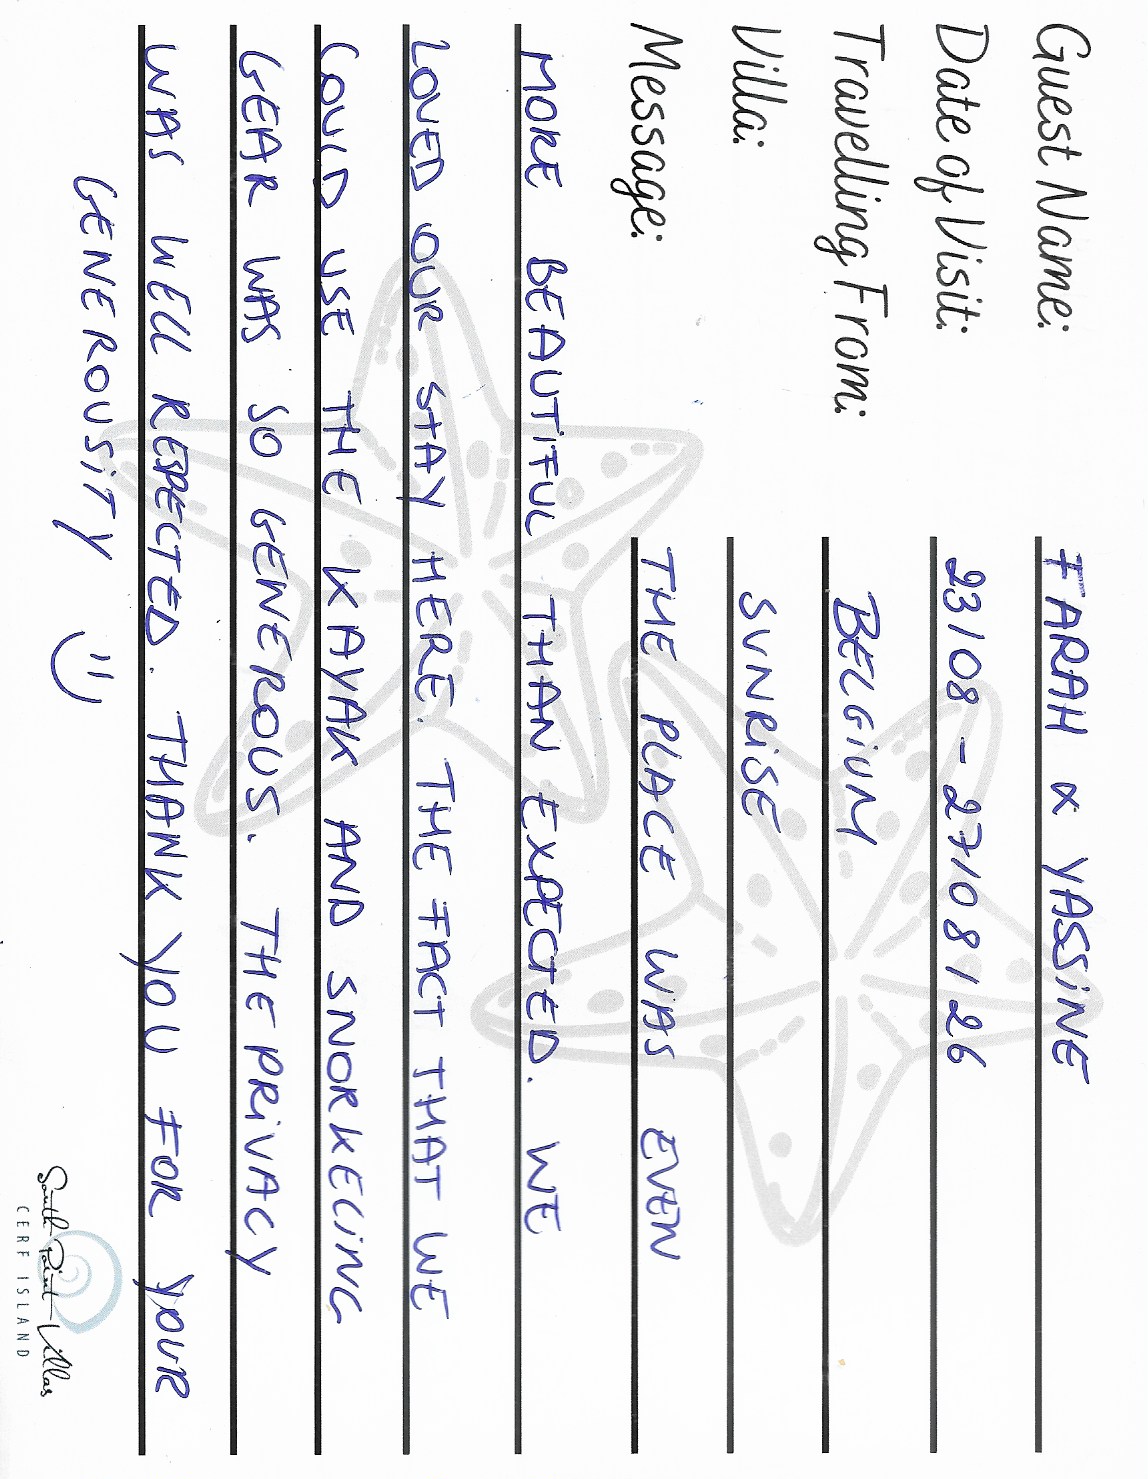 Guest Name: FARAH & YASSINE
Date of Visit: 23/08 - 27/08/26
Travelling From: BELGIUM
Villa: SUNRISE
Message: THE PLACE WAS EVEN
MORE BEAUTIFUL THAN EXPECTED. WE
LOVED OUR STAY HERE. THE FACT THAT WE
COULD USE THE KAYAK AND SNORKELING
GEAR WAS SO GENEROUS. THE PRIVACY
WAS WELL RESPECTED. THANK YOU FOR YOUR
GENEROUSITY
South Point Villas
CERF ISLAND